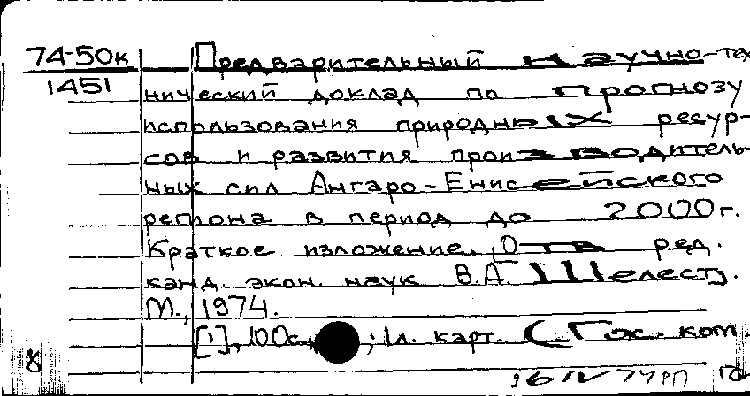 74-50к Предварительный научно-тех
1451 нический доклад по прогнозу
использования природных ресур-
сов и развития производитель-
ных сил Ангаро-Енисейского
региона в период до 2000г.
Краткое изложение. Отв ред.
канд. экон. наук В.А. Шелест.
М., 1974.
[1], 100с. ; 1л. карт. (Гос. ком.
8